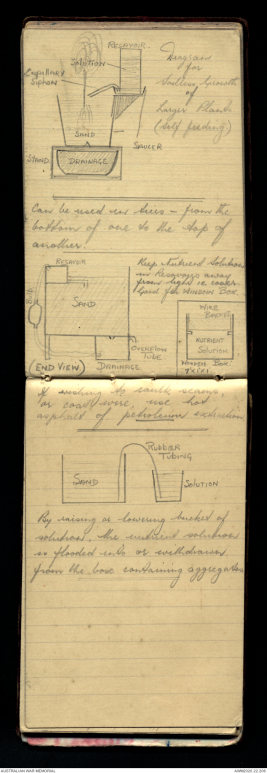 RESAVOIR.
SOLUTION
CAPILLARY
SIPHON
Diagram
for
Soilless Growth
of
Larger Plants
(self feeding)
SAND
SAUCER
STAND.
DRAINAGE
Can be used in tiers – from the
bottom of one to the top of
another.
RESAVOIR
SAND
OVERFLOW
TUBE
(END VIEW)
DRAINAGE
Keep Nutrient Solution
in Resavoirs away
from light
for WINDOW BOX.
WIRE
BASKET
NUTRIENT
SOLUTION
WOODEN BOX.
If wishing to
or coat wire, use hot
asphalt of petroleum extraction
RUBBER
TUBING
SAND
SOLUTION
By raising or lowering bucket of
solution, the nutrient solution
is flooded into or withdrawn
from the box containing aggregates
AUSTRALIAN WAR MEMORIAL